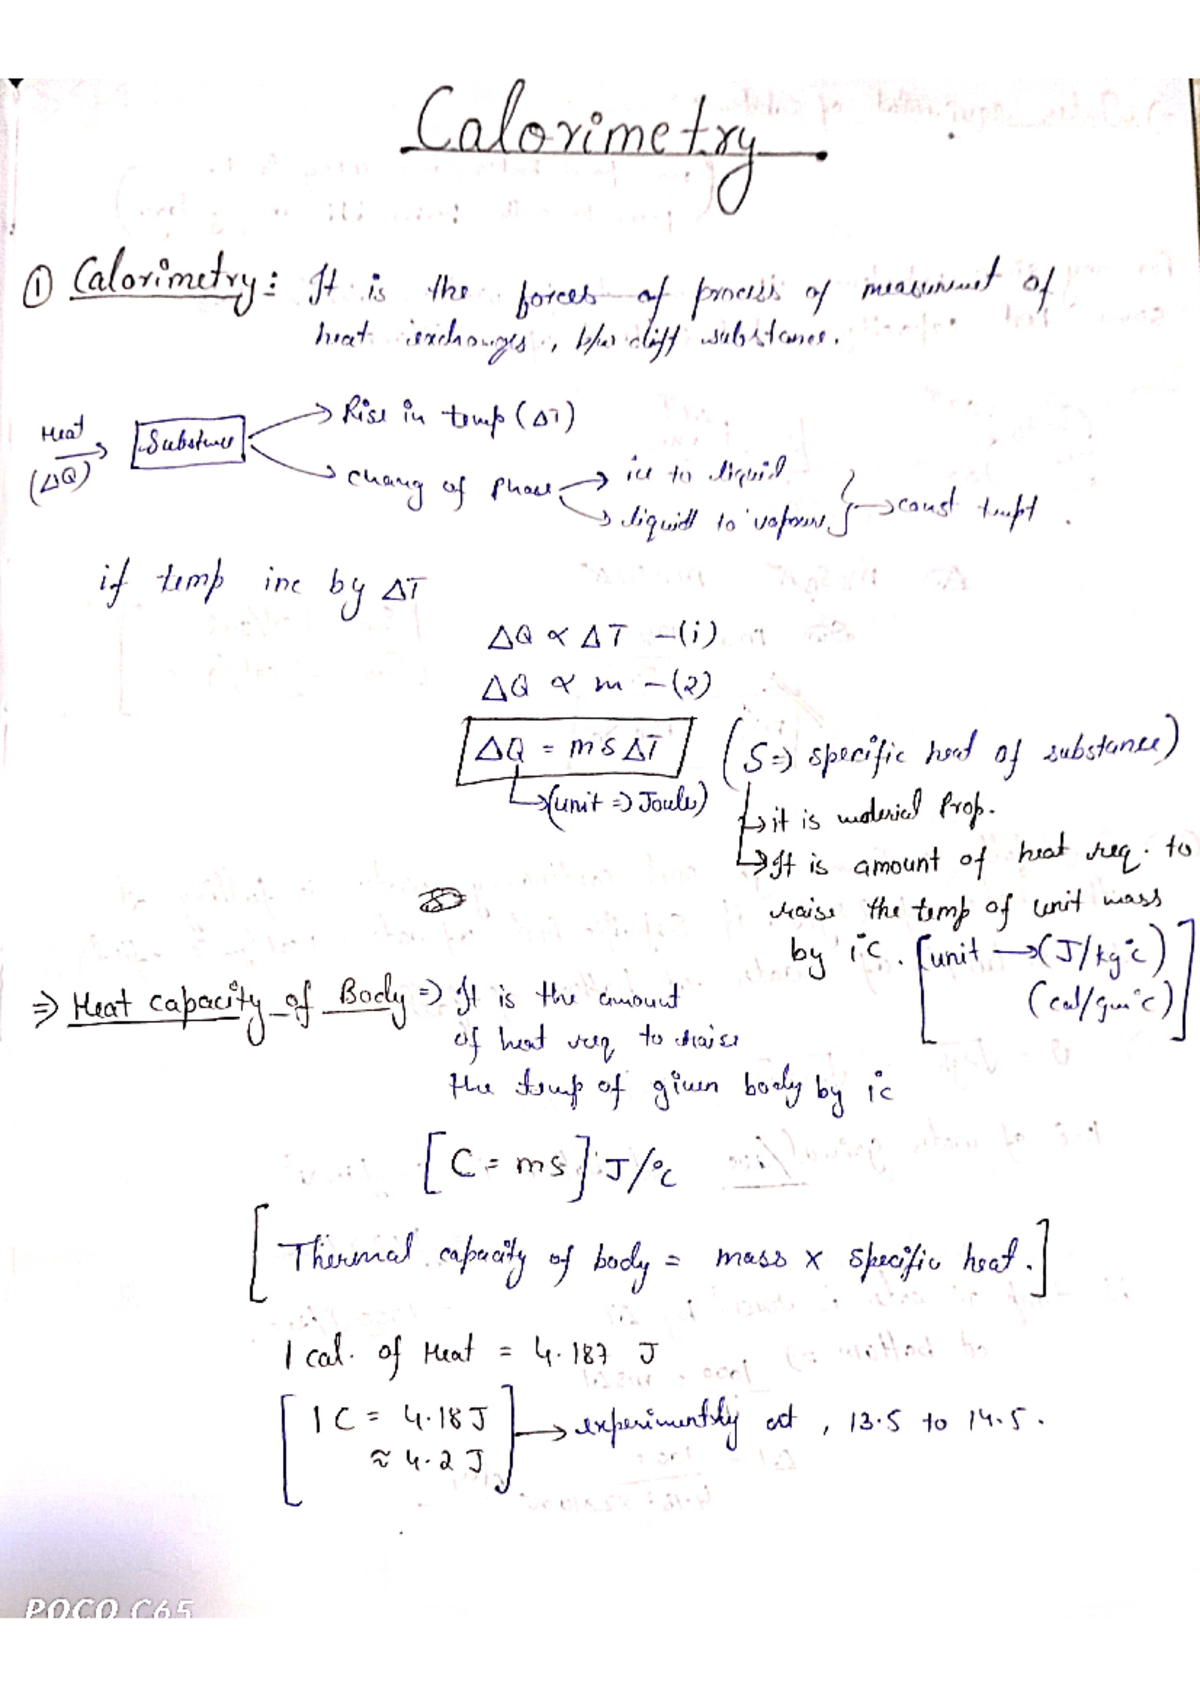 Calorimetry.
① Calorimetry: It is the forces of process of measurment of
heat exchanges, b/w diff substance.
Heat
(ΔQ)
Substance
Rise in temp (ΔT)
chang of phase
ice to liquid
liquid to vapour
const tempt.
if temp inc by ΔT
ΔQ ∝ ΔT –(i)
ΔQ ∝ m –(2)
ΔQ = msΔT
(S⇒ specific heat of substance)
(unit ⇒ Joule)
it is material Prop.
It is amount of heat req. to
raise the temp of unit mass
by 1°C. [unit → (J/kg°c)
(cal/gm°c)]
⇒ Heat capacity of Body ⇒ It is the amount
of heat req to raise
the temp of given body by 1°c
[C = ms] J/°c
[Thermal capacity of body = mass x specific heat.]
1 cal. of Heat = 4.187 J
[1 C = 4.18 J
≈ 4.2 J] → experimentally at, 13.5 to 14.5.
POCO C65